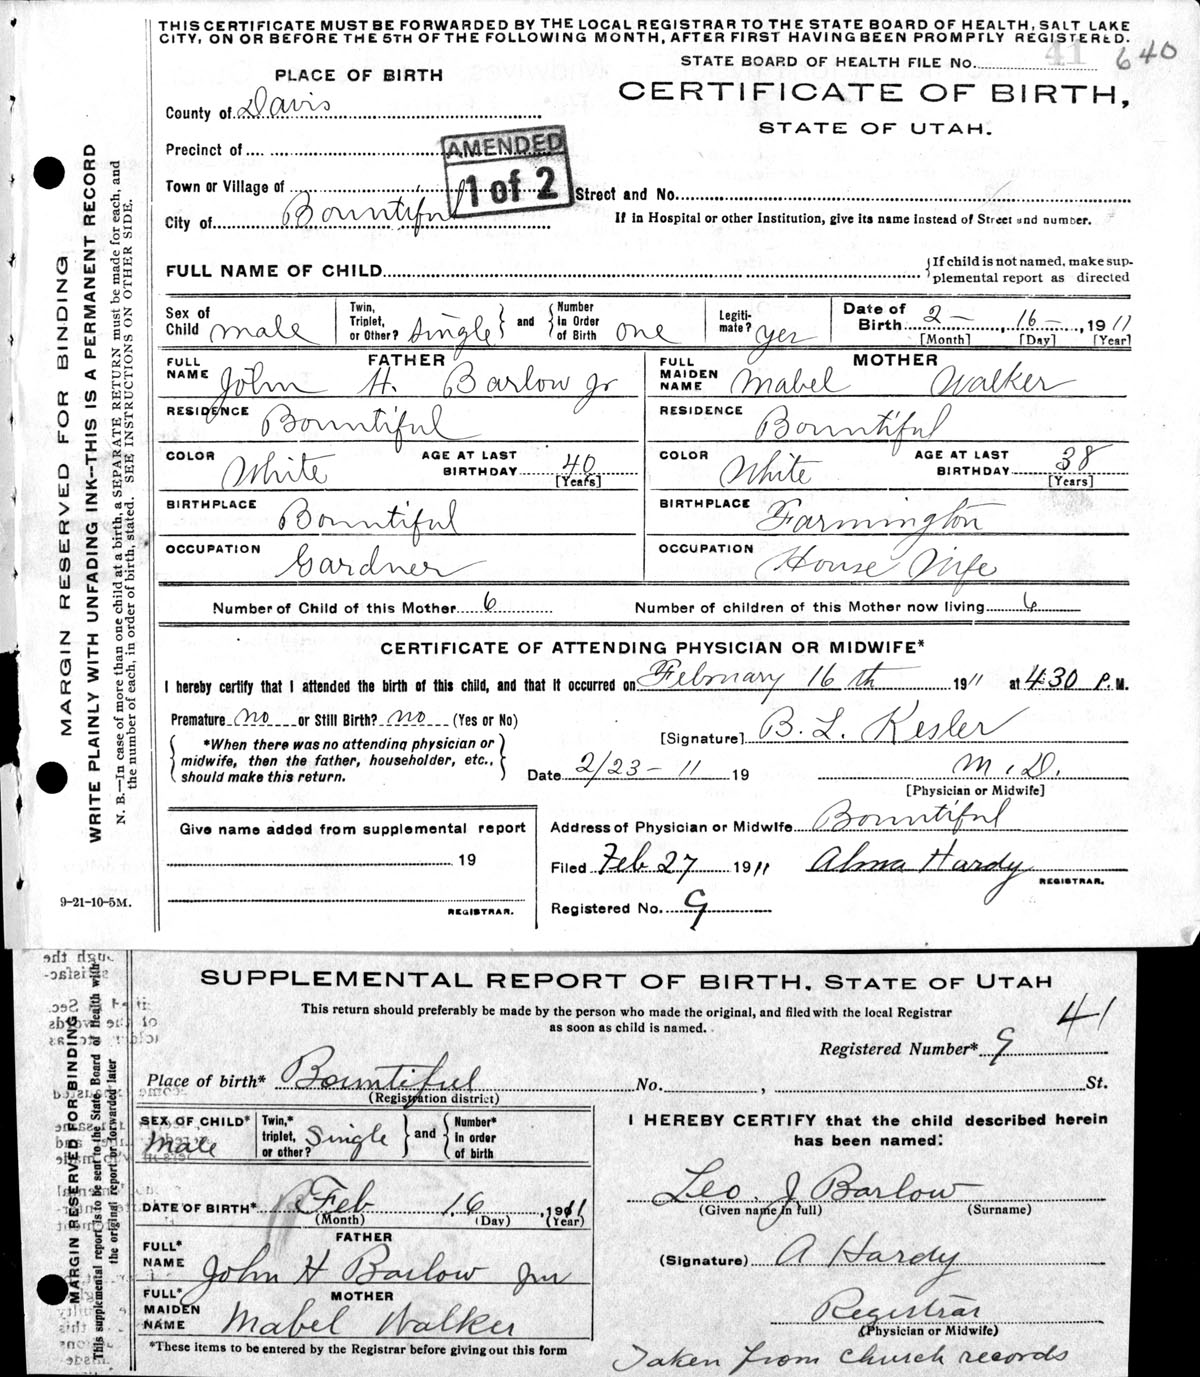 THIS CERTIFICATE MUST BE FORWARDED BY THE LOCAL REGISTRAR TO THE STATE BOARD OF HEALTH, SALT LAKE
CITY, ON OR BEFORE THE 5TH OF THE FOLLOWING MONTH, AFTER FIRST HAVING BEEN PROMPTLY REGISTERED.
STATE BOARD OF HEALTH FILE No. 41 640
PLACE OF BIRTH
CERTIFICATE OF BIRTH,
STATE OF UTAH.
County of Davis
Precinct of
AMENDED
1 of 2
Town or Village of
Street and No.
City of Bountiful
If in Hospital or other Institution, give its name instead of Street and number.
FULL NAME OF CHILD
If child is not named, make sup-
plemental report as directed
Sex of Child male
Twin, Triplet, or Other? Single and Number in Order of Birth one
Legiti-mate? yes
Date of Birth 2 - , 16 - , 1911
[Month] [Day] [Year]
FATHER
FULL NAME John H. Barlow Jr
MOTHER
FULL MAIDEN NAME Mabel Walker
RESIDENCE Bountiful
RESIDENCE Bountiful
COLOR White AGE AT LAST BIRTHDAY 40 [Years]
COLOR White AGE AT LAST BIRTHDAY 38 [Years]
BIRTHPLACE Bountiful
BIRTHPLACE Farmington
OCCUPATION Gardner
OCCUPATION House Wife
Number of Child of this Mother 6 Number of children of this Mother now living 6
CERTIFICATE OF ATTENDING PHYSICIAN OR MIDWIFE*
I hereby certify that I attended the birth of this child, and that it occurred on February 16 th 1911 at 4:30 P.M.
Premature no or Still Birth? no (Yes or No)
[Signature] B. L. Kesler
*When there was no attending physician or
midwife, then the father, householder, etc.,
should make this return.
Date 2/23-11 19 M.D.
[Physician or Midwife]
Give name added from supplemental report
19
REGISTRAR.
Address of Physician or Midwife Bountiful
Filed Feb 27 1911 Alma Hardy
REGISTRAR.
Registered No. 9
9-21-10-5M.
MARGIN RESERVED FOR BINDING
WRITE PLAINLY WITH UNFADING INK--THIS IS A PERMANENT RECORD
N. B.--In case of more than one child at a birth, a SEPARATE RETURN must be made for each, and
the number of each, in order of birth, stated. SEE INSTRUCTIONS ON OTHER SIDE.
SUPPLEMENTAL REPORT OF BIRTH, STATE OF UTAH
This return should preferably be made by the person who made the original, and filed with the local Registrar
as soon as child is named.
41
Registered Number* 9
Place of birth* Bountiful No. , St.
(Registration district)
SEX OF CHILD* Male
Twin,* triplet, or other? Single and Number* in order of birth
I HEREBY CERTIFY that the child described herein
has been named:
Leo. J Barlow
(Given name in full) (Surname)
DATE OF BIRTH* Feb 16, 1911
(Month) (Day) (Year)
FATHER
FULL* NAME John H Barlow Jnr
(Signature) A Hardy
MOTHER
FULL* MAIDEN NAME Mabel Walker
Registrar
(Physician or Midwife)
*These items to be entered by the Registrar before giving out this form
Taken from church records
MARGIN RESERVED FOR BINDING
This supplemental report is to be sent to the State Board of Health with
the original report or forwarded later